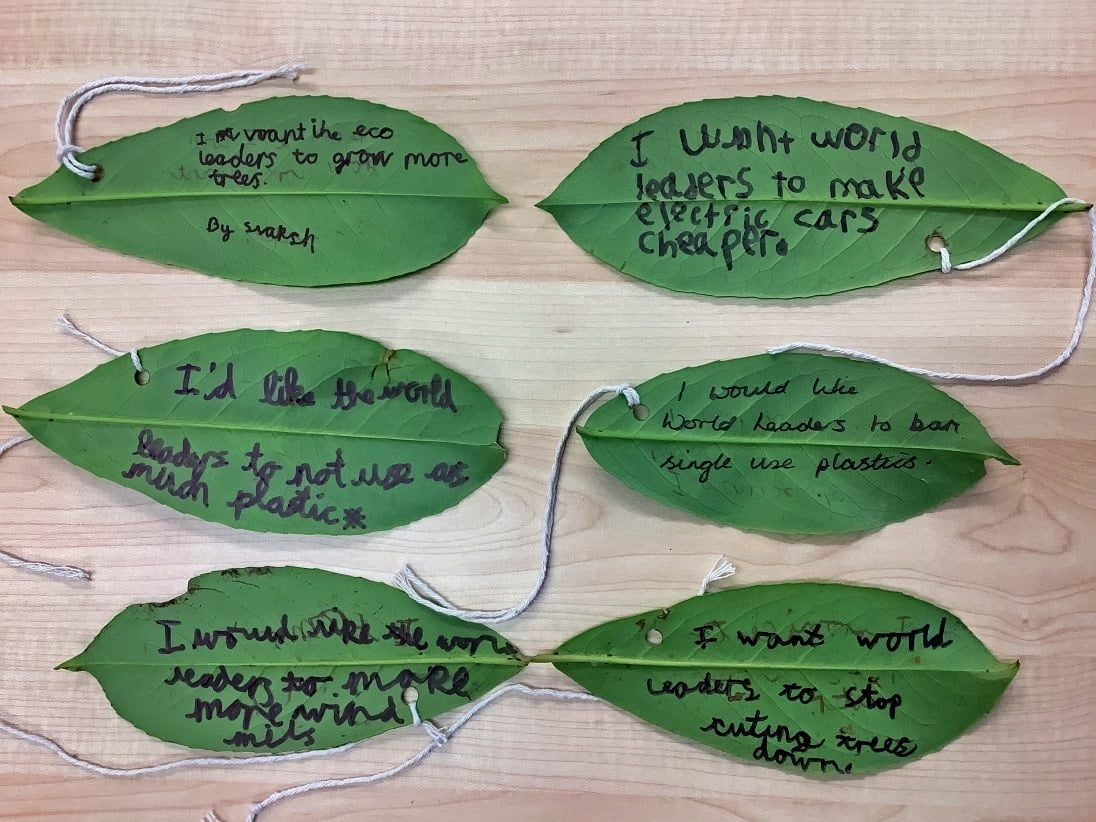 I want the eco
leaders to grow more
trees.
By svaksh
I want world
leaders to make
electric cars
cheaper.
I'd like the world
leaders to not use as
much plastic
I would like
World Leaders to ban
single use plastics.
I would like the worl
leaders to make
more wind
mils
I want world
leaders to stop
cuting trees
down.